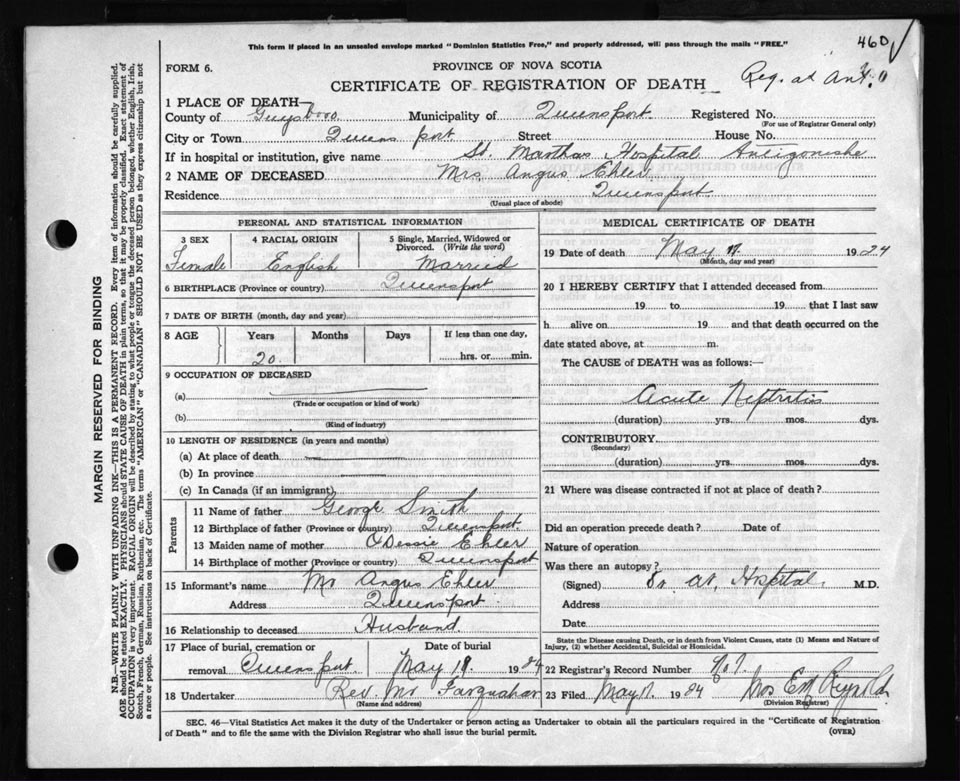 460
This form if placed in an unsealed envelope marked "Dominion Statistics Free," and properly addressed, will pass through the mails "FREE."
FORM 6.
PROVINCE OF NOVA SCOTIA
CERTIFICATE OF REGISTRATION OF DEATH
Reg. at Ant.
1 PLACE OF DEATH—
County of Guysboro. Municipality of Queensport Registered No.
(For use of Registrar General only)
City or Town Queens port Street House No.
If in hospital or institution, give name St. Marthas Hospital Antigonishe
2 NAME OF DECEASED Mrs. Angus Ehler
Residence Queensport
(Usual place of abode)
PERSONAL AND STATISTICAL INFORMATION
3 SEX 4 RACIAL ORIGIN 5 Single, Married, Widowed or Divorced. (Write the word)
Female English Married
6 BIRTHPLACE (Province or country) Queensport
7 DATE OF BIRTH (month, day and year)
8 AGE Years Months Days If less than one day,
20. hrs. or min.
9 OCCUPATION OF DECEASED
(a)
(Trade or occupation or kind of work)
(b)
(Kind of industry)
10 LENGTH OF RESIDENCE (in years and months)
(a) At place of death
(b) In province
(c) In Canada (if an immigrant)
Parents
11 Name of father George Smith
12 Birthplace of father (Province or country) Queensport
13 Maiden name of mother Dessie Ehler
14 Birthplace of mother (Province or country) Queensport
15 Informant's name Mr Angus Ehler
Address Queensport
16 Relationship to deceased Husband.
17 Place of burial, cremation or Date of burial
removal Queensport May 19 24
18 Undertaker Rev. Mr Farquahar
(Name and address)
MEDICAL CERTIFICATE OF DEATH
19 Date of death May 1924
(Month, day and year)
20 I HEREBY CERTIFY that I attended deceased from
19 to 19 that I last saw
h alive on 19 and that death occurred on the
date stated above, at m.
The CAUSE of DEATH was as follows:—
Acute Neptritis
(duration) yrs. mos. dys.
CONTRIBUTORY
(Secondary)
(duration) yrs. mos. dys.
21 Where was disease contracted if not at place of death?
Did an operation precede death? Date of
Nature of operation
Was there an autopsy?
(Signed) Dr. at Hospital, M.D.
Address
Date
State the Disease causing Death, or in death from Violent Causes, state (1) Means and Nature of
Injury, (2) whether Accidental, Suicidal or Homicidal.
22 Registrar's Record Number
23 Filed May 1924 Mrs E Reynolds
(Division Registrar)
SEC. 46—Vital Statistics Act makes it the duty of the Undertaker or person acting as Undertaker to obtain all the particulars required in the "Certificate of Registration
of Death" and to file the same with the Division Registrar who shall issue the burial permit.
(OVER)
MARGIN RESERVED FOR BINDING
N.B.—WRITE PLAINLY, WITH UNFADING INK—THIS IS A PERMANENT RECORD. Every item of information should be carefully supplied.
AGE should be stated EXACTLY. PHYSICIANS should STATE CAUSE OF DEATH in plain terms, so that it may be properly classified. Exact statement of
OCCUPATION is very important. RACIAL ORIGIN will be described by stating to what people or tongue the deceased person belonged, whether English, Irish,
Scotch, French, German, Russian, Ruthenian, etc. The terms "AMERICAN" or "CANADIAN" SHOULD NOT BE USED as they express citizenship but not
a race or people. See instructions on back of Certificate.